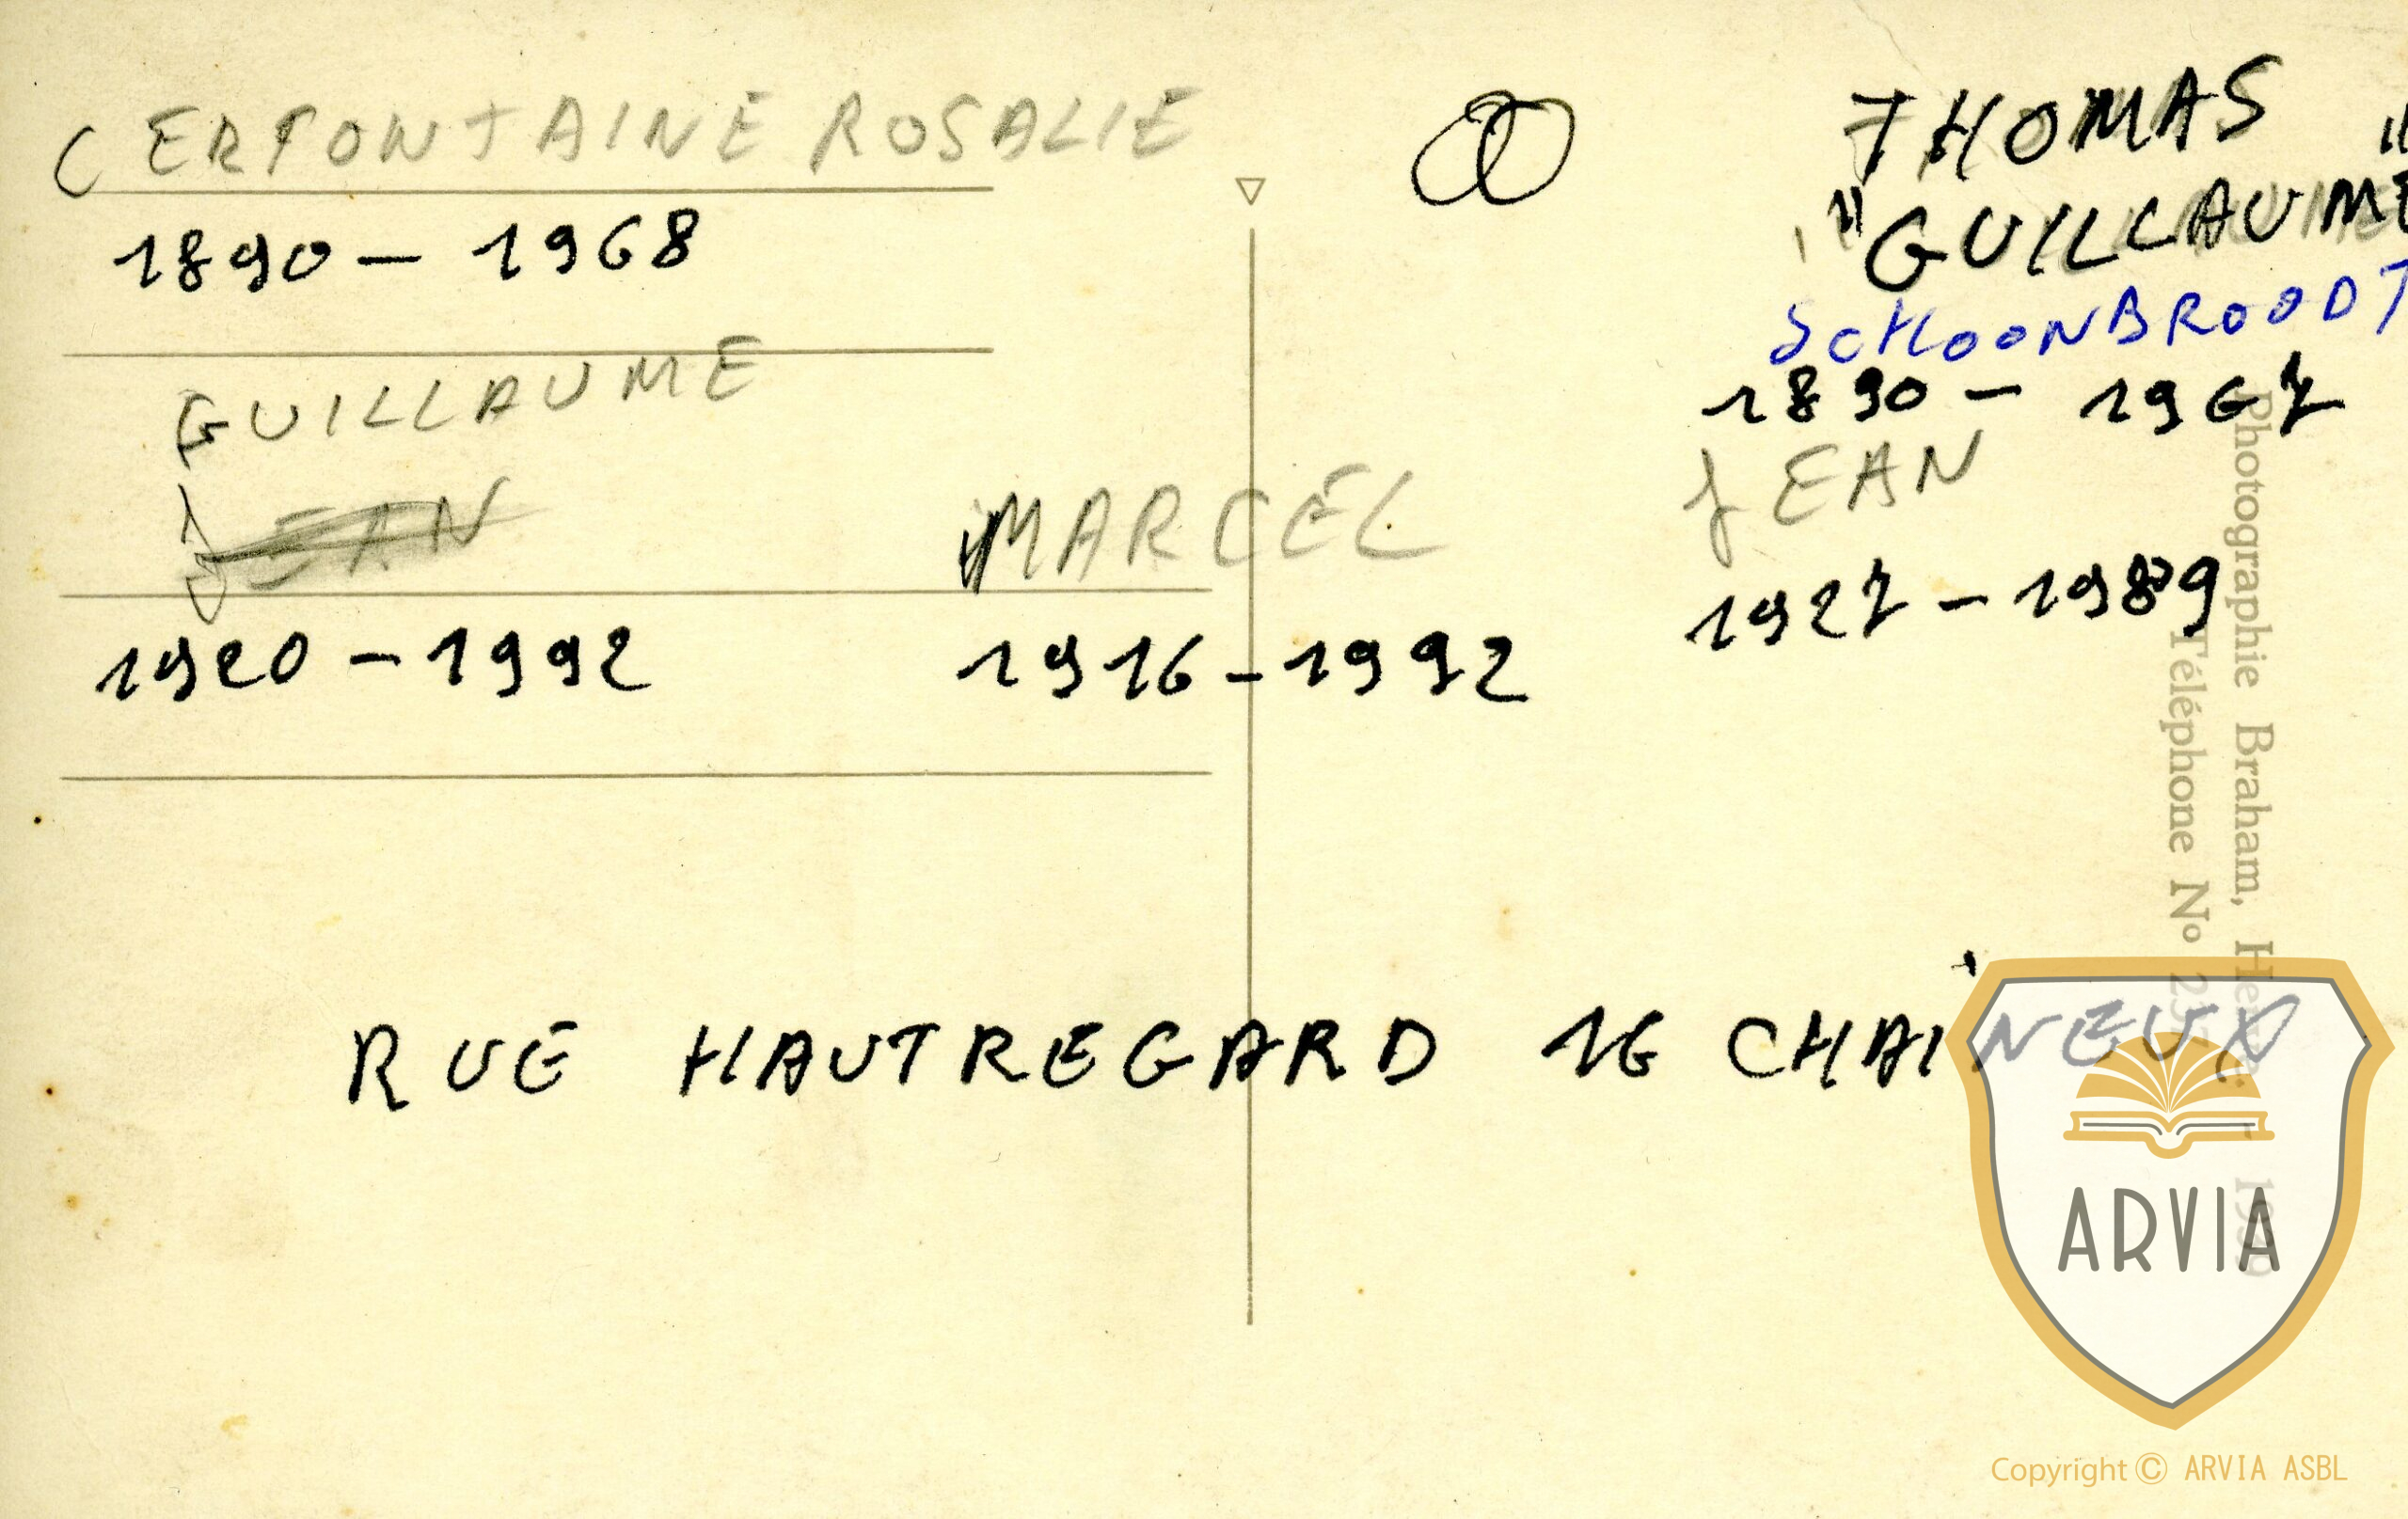 CERFONTAINE ROSALIE
1890 - 1968
THOMAS "
"GUILLAUME
SCHOONBROODT
1890 - 1967
GUILLAUME
JEAN
1920 - 1992
MARCEL
1916 - 1992
JEAN
1927 - 1989
RUE HAUTREGARD 16 CHAINEUX
Photographie Braham, Herve - 
Téléphone No
ARVIA
Copyright © ARVIA ASBL